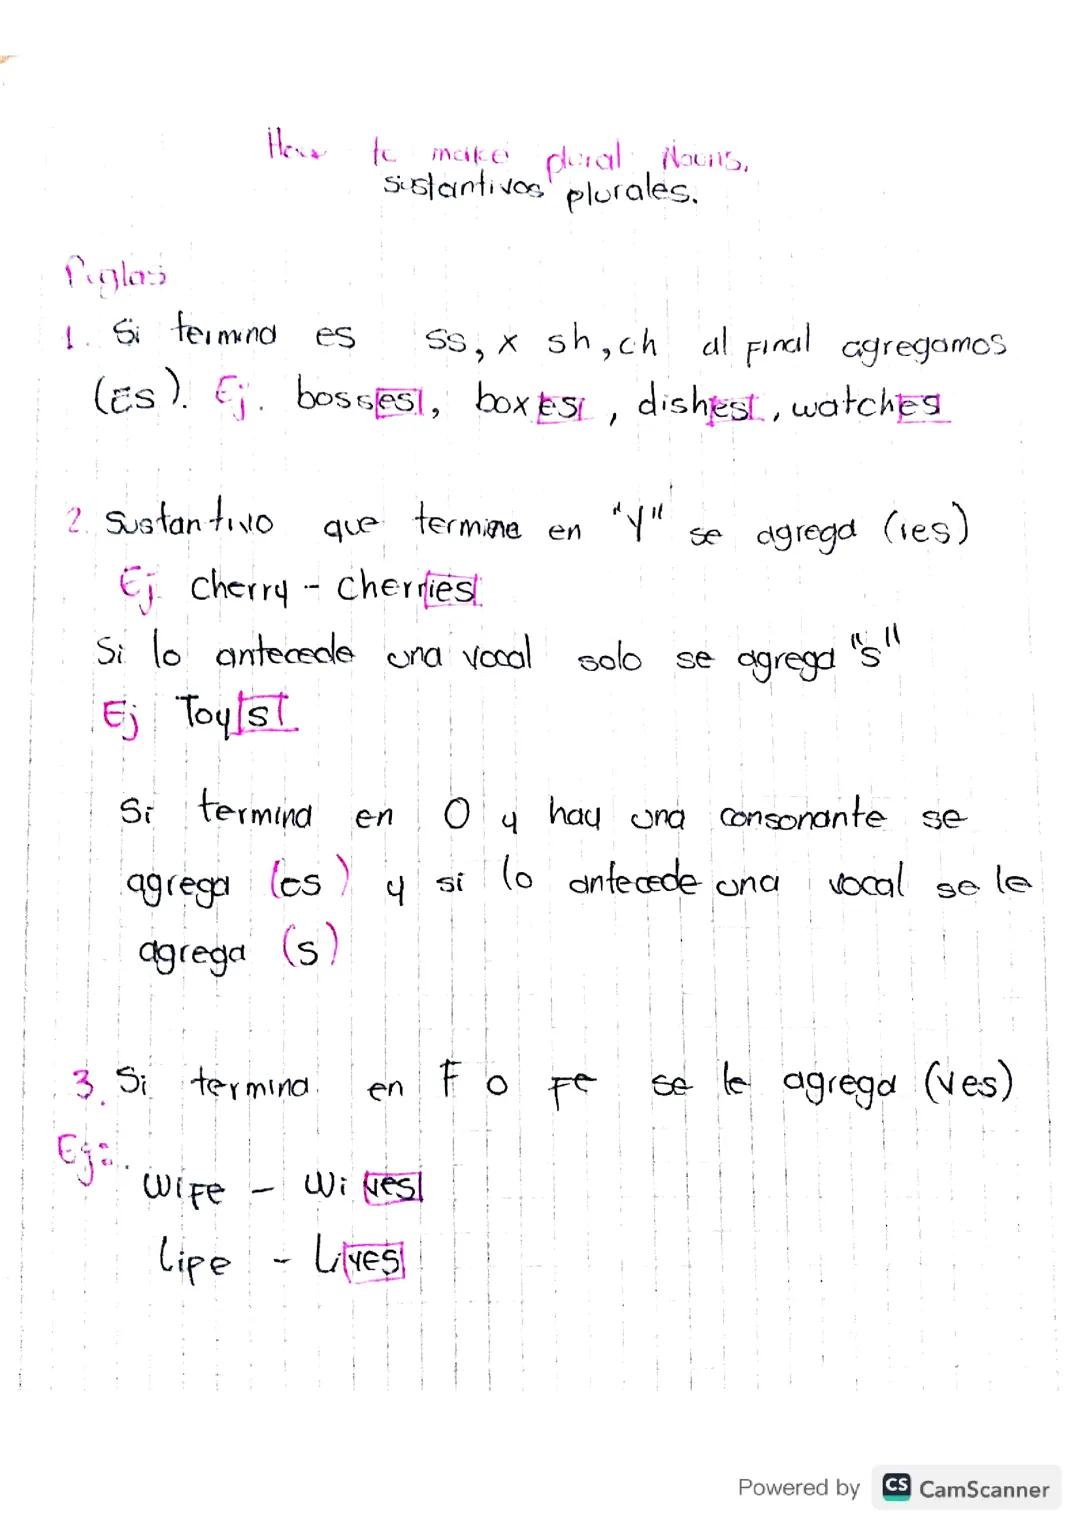 How to make plural Nouns.
sistantivos plurales.
Reglas
1. Si termina es ss, x sh, ch al final agregamos
(Es). Ej. bosses, boxes, dishes, watches
2. Sustantivo que termine en "Y" se agrega (ies)
Ej cherry - cherries
Si lo antecede una vocal solo se agrega "s"
Ej Toys
Si termina en O y hay una consonante se
agrega (es) y si lo antecede una vocal se le
agrega (s)
3. Si termina en F o Fe se le agrega (ves)
Ej:
Wife - Wives
Lipe - Lives
Powered by CS CamScanner